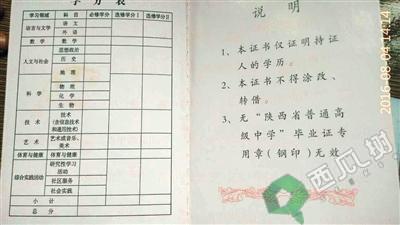 学分表
学习领域 科目 必修学分 选修学分Ⅰ 选修学分Ⅱ
语言与文学 语文
外语
数学 数学
人文与社会 思想政治
历史
地理
科学 物理
化学
生物
技术 技术
(含信息技术
和通用技术)
艺术 艺术或音乐、
美术
体育与健康 体育与健康
综合实践活动 研究性学习
活动
社区服务
社会实践
小计
总分
说明
1、本证书仅证明持证
人的学历。
2、本证书不得涂改、
转借。
3、无“陕西省普通高
级中学”毕业证专
用章(钢印)无效
西瓜树
2016-08-04 14:14